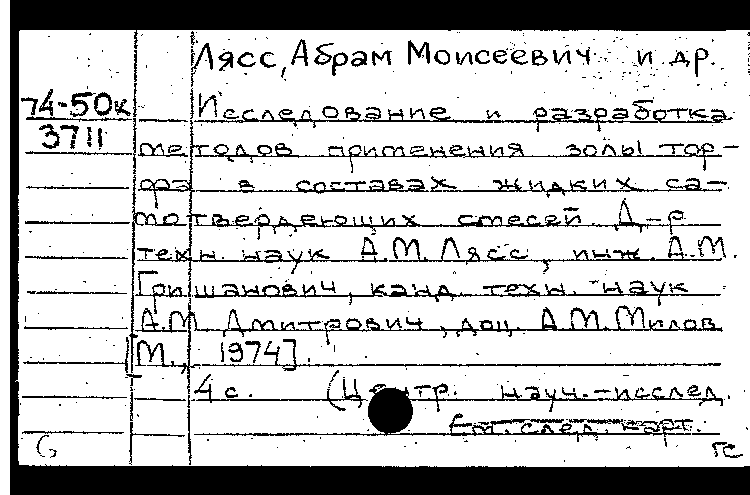 Лясс, Абрам Моисеевич и др.
74-50к Исследование и разработка
3711 методов применения золы тор-
фа в составах жидких са-
мотвердеющих смесей. Д-р
техн. наук А.М. Лясс, инж. А.М.
Гришанович, канд. техн. наук
А.М. Дмитрович, доц. А.М. Милов
[М., 1974].
4 с. (Центр. науч.-исслед.
См. след. карт.
б гс